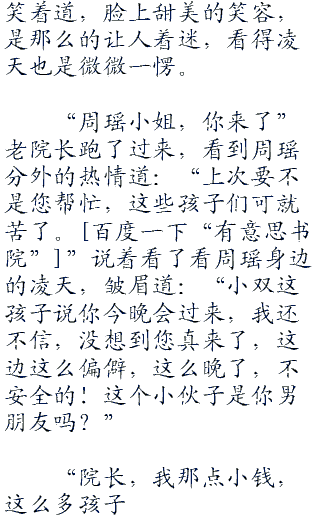 笑着道，脸上甜美的笑容，
是那么的让人着迷，看得凌
天也是微微一愣。
“周瑶小姐，你来了”
老院长跑了过来，看到周瑶
分外的热情道：“上次要不
是您帮忙，这些孩子们可就
苦了。[百度一下“有意思书
院”]”说着看了看周瑶身边
的凌天，皱眉道：“小双这
孩子说你今晚会过来，我还
不信，没想到您真来了，这
边这么偏僻，这么晚了，不
安全的！这个小伙子是你男
朋友吗？”
“院长，我那点小钱，
这么多孩子